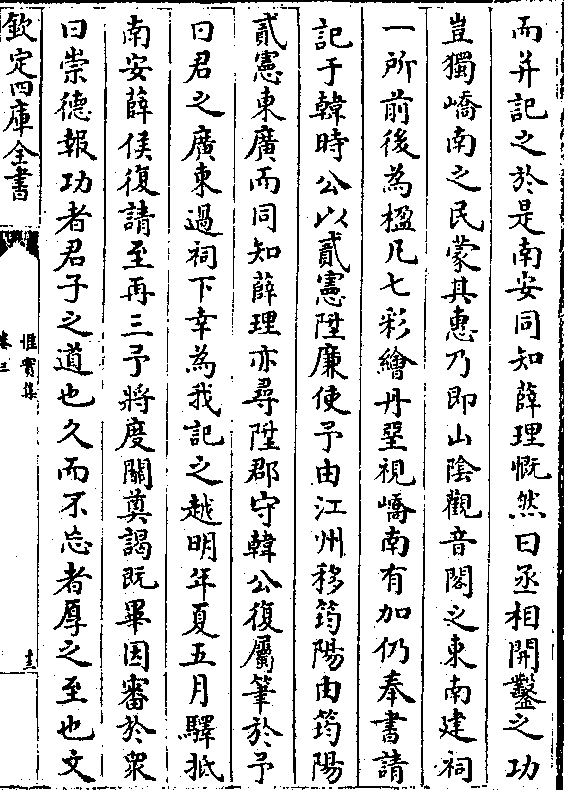 而并記之於是南安同知薛理慨然曰丞相開鑿之功
豈獨嶠南之民蒙其惠乃即山陰觀音閣之東南建祠
一所前後為楹凡七彩繪丹堊視嶠南有加仍奉書請
記于韓時公以貳憲陞廉使予由江州移筠陽由筠陽
貳憲東廣而同知薛理亦尋陞郡守韓公復屬筆於予
曰君之廣東過祠下幸為我記之越明年夏五月驛抵
南安薛侯復請至再三予將度關奠謁既畢因審於衆
曰崇德報功者君子之道也久而不忘者厚之至也文
欽定四庫全書
惟實集
卷三